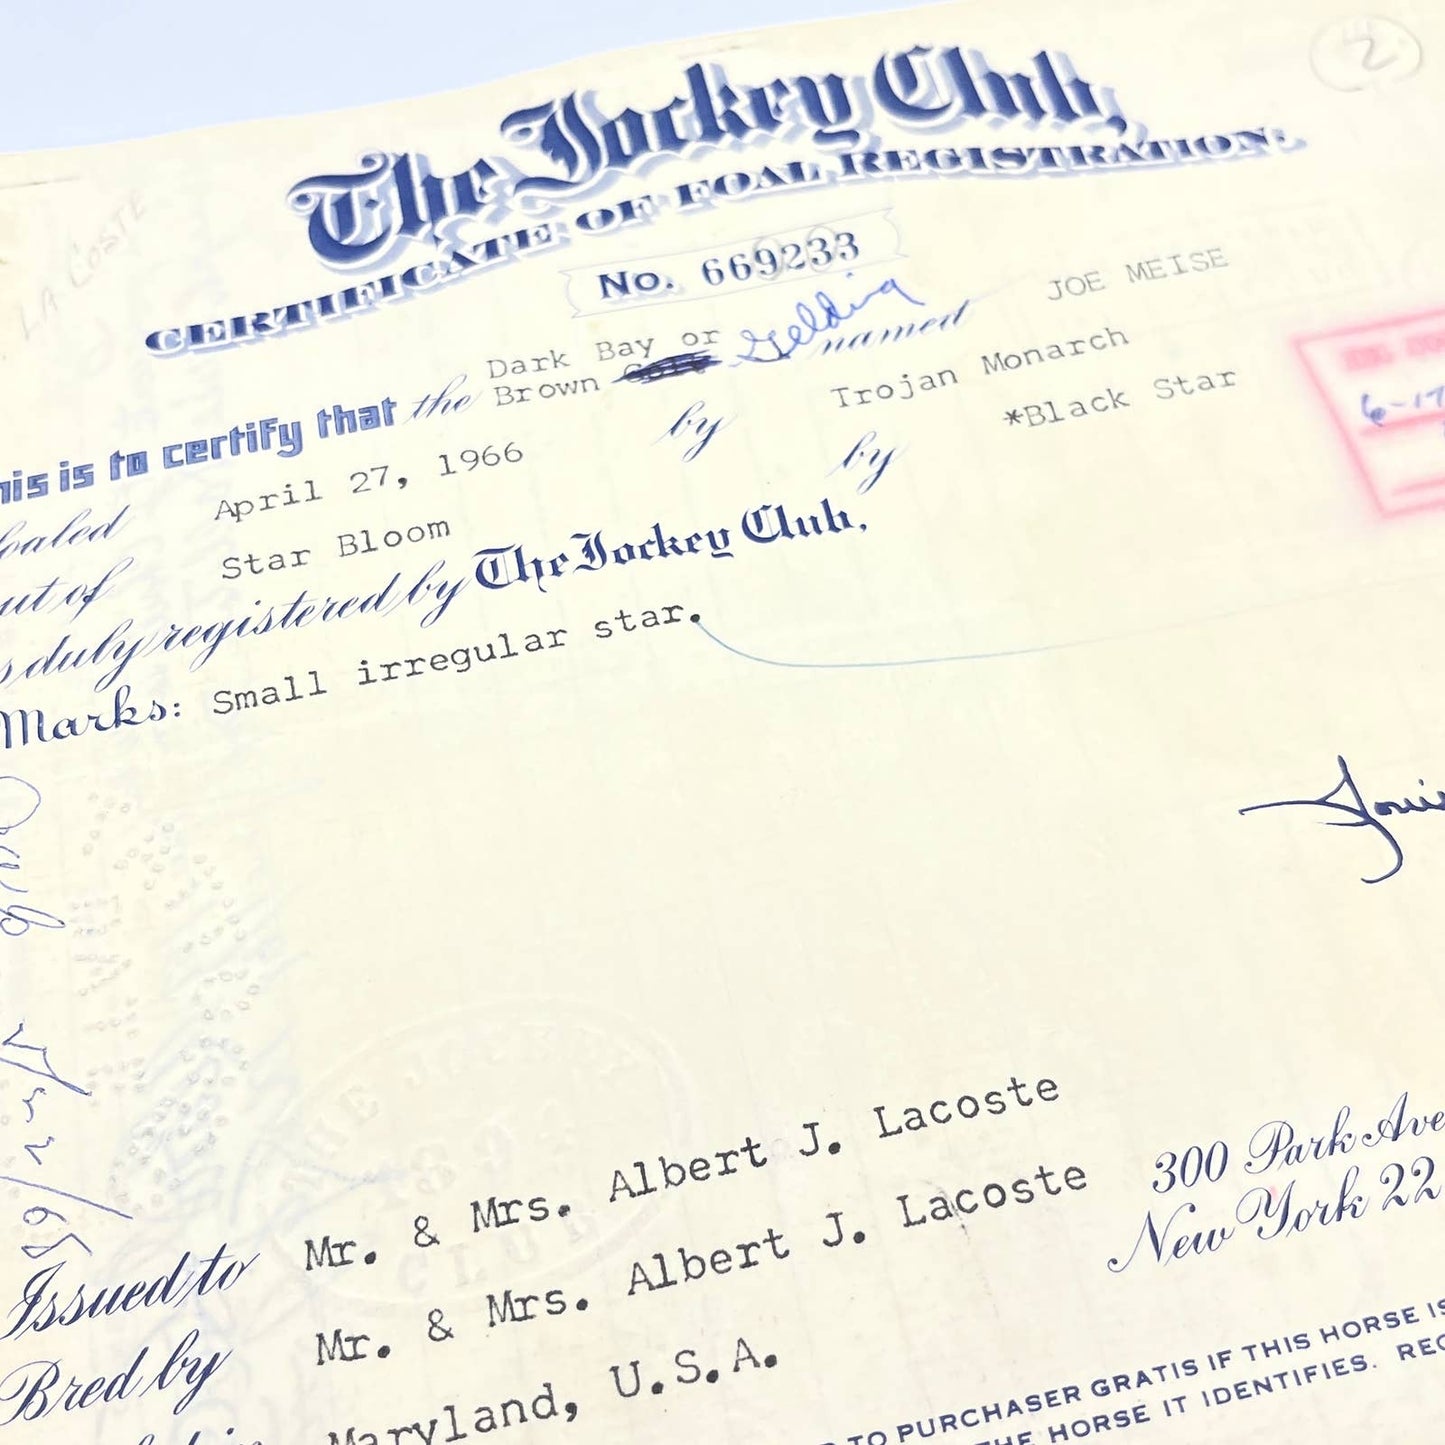 2
The Jockey Club,
CERTIFICATE OF FOAL REGISTRATION.
LA COSTE
No. 669233
Dark Bay or
his is to certify that the Brown Colt Gelding named JOE MEISE
oaled April 27, 1966 by Trojan Monarch
ut of Star Bloom by *Black Star
s duly registered by The Jockey Club,
Marks: Small irregular star.
6-17
THE JOCKEY
CLUB
Issued to Mr. & Mrs. Albert J. Lacoste
Bred by Mr. & Mrs. Albert J. Lacoste
Maryland, U.S.A.
300 Park Ave
New York 22
TO PURCHASER GRATIS IF THIS HORSE IS
HE HORSE IT IDENTIFIES. REC